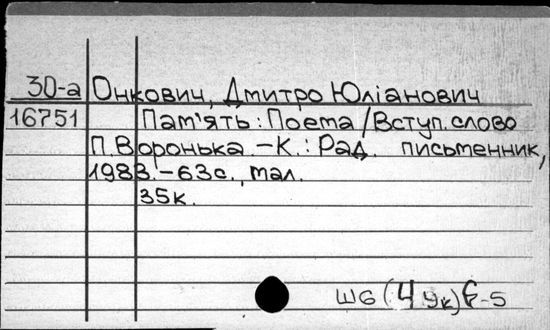 30-а Онкович, Дмитро Юліанович
16751 Пам'ять: Поема / Вступ. слово
П. Воронька. – К.: Рад. письменник,
1983. – 63с., мал.
35к.
Ш6(4Ук)6-5